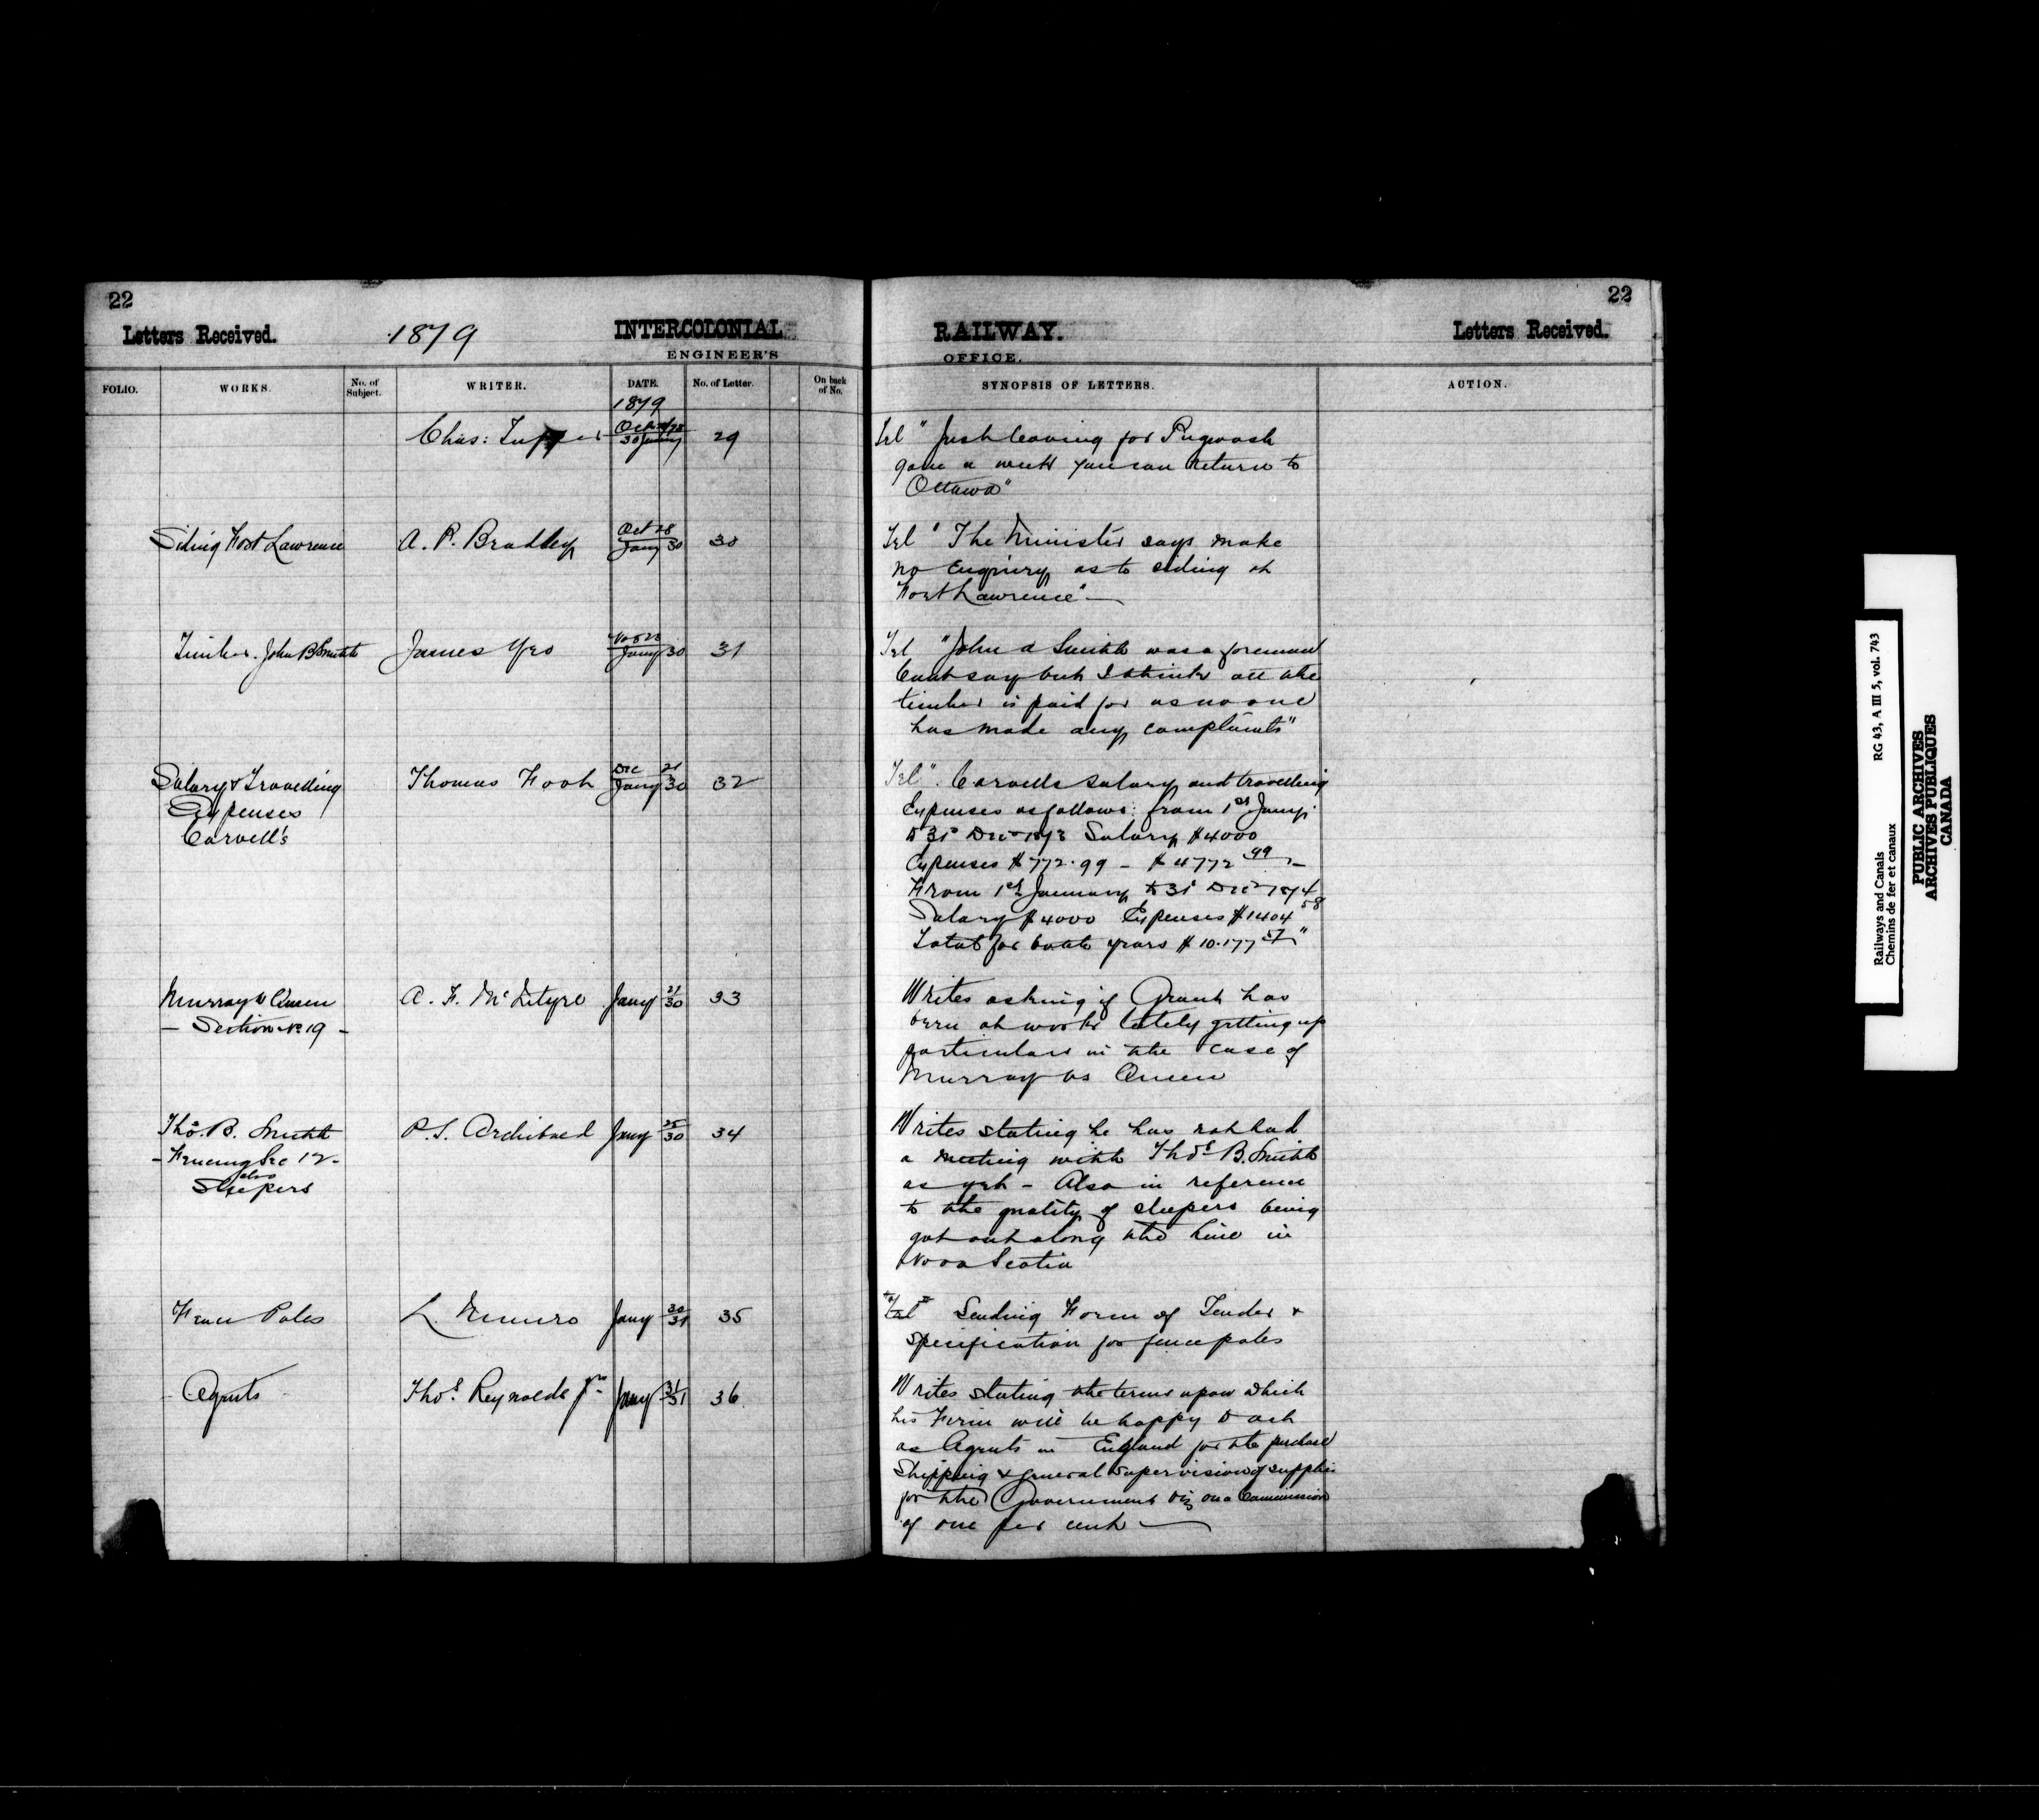 22
22
Letters Received.
1879
INTERCOLONIAL
RAILWAY.
Letters Received.
ENGINEER'S
OFFICE.
FOLIO.
WORKS.
No. of Subject.
WRITER.
DATE.
No. of Letter.
On back of No.
SYNOPSIS OF LETTERS.
ACTION.
1879
Chas: Tupper
30 Jany
29
Tel " Just leaving for Pugwash
gone a week you can return to
Ottawa"
Siding Fort Lawrence
A. P. Bradley
Oct 28
Jany 30
30
Tel " The Minister says make
no enquiry as to siding at
Fort Lawrence" —
Timber. John B Smith
James Yeo
Nov 23
Jany 30
31
Tel "John a Smith was a foreman
Cant say but I think all the
timber is paid for as no one
has made any complaints"
Salary & Travelling
Expenses
Carvell's
Thomas Foot
Dec 21
Jany 30
32
Tel ". Carvells salary and travelling
Expenses as follows: from 1st Jany
to 31 Dec 1873 Salary $4000
Expenses $772.99 — $4772 99 —
From 1st January to 31 Dec 1874
Salary $4000 Expenses $1404 58
Total for both years $10.177 57"
Murray vs Queen
— Section No 19 —
A. F. McIntyre
Jany 21/30
33
Writes asking if Grant has
been at work lately getting up
particulars in the case of
Murray vs Queen
Thos. B. Smith
— Fencing Sec 12 —
also
Sleepers
P. S. Archibald
Jany 25/30
34
Writes stating he has not had
a meeting with Thos B. Smith
as yet — Also in reference
to the quality of sleepers being
got out along the line in
Nova Scotia
Fence Poles
L. Munro
Jany 30/31
35
Sending Form of Tender &
Specification for fence poles
Agents
Thos. Reynolds Jr
Jany 31/31
36
Writes stating the terms upon which
his Firm will be happy to act
as Agents in England for the purchase
Shipping & general supervision of supplies
for the Government viz on a Commission
of one per cent —
RG 43, A III 5, vol. 743
Railways and Canals
Chemins de fer et canaux
PUBLIC ARCHIVES
ARCHIVES PUBLIQUES
CANADA